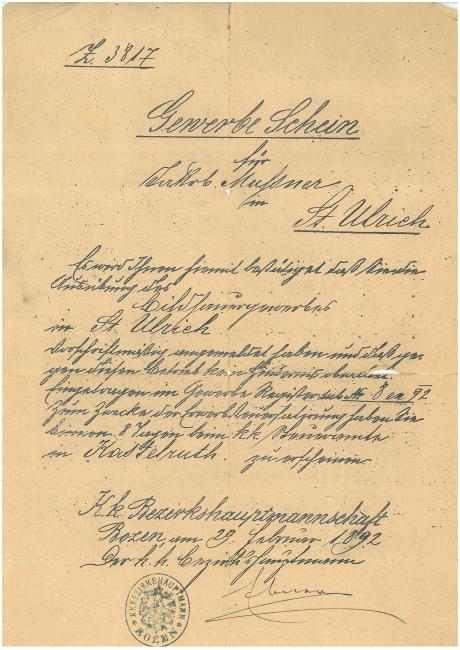 Z. 3817
Gewerbe Schein
für
Jakob Mußner
in
St. Ulrich
Es wird Ihnen hiemit bestätiget daß Sie die
Ausübung des
Bildhauergewerbes
in St. Ulrich
vorschriftmäßig angemeldet haben und daß ge-
gen diesen Betrieb kein Hindernis obwaltet
Eingetragen im Gewerbe Register sub No 8 ex 92
Zum Zwecke der Erwerbsteuerfatzung haben Sie
binnen 8 Tagen beim k.k. Steueramte
in Kastelruth zu erscheinen
K.k. Bezirkshauptmannschaft
Bozen, am 29. Februar 1892
Der k. k. Bezirkshauptmann
K.K. BEZIRKSHAUPTMANN
BOZEN